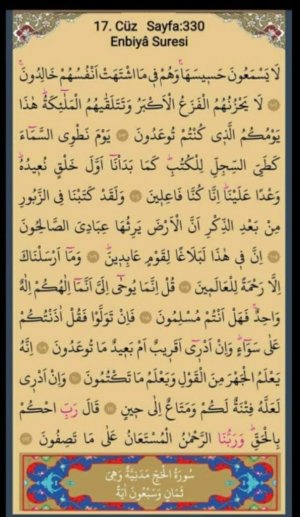 17. Cüz Sayfa:330
Enbiyâ Suresi
لَا يَسْمَعُونَ حَسِيسَهَاۚ وَهُمْ فِي مَا اشْتَهَتْ اَنْفُسُهُمْ خَالِدُونَۚ
لَا يَحْزُنُهُمُ الْفَزَعُ الْاَكْبَرُ وَتَتَلَقّٰيهُمُ الْمَلٰٓئِكَةُۜ هٰذَا
يَوْمُكُمُ الَّذِي كُنْتُمْ تُوعَدُونَ يَوْمَ نَطْوِي السَّمَٓاءَ
كَطَيِّ السِّجِلِّ لِلْكُتُبِۜ كَمَا بَدَأْنَٓا اَوَّلَ خَلْقٍ نُعِيدُهُۜ
وَعْدًا عَلَيْنَاۜ اِنَّا كُنَّا فَاعِلِينَ وَلَقَدْ كَتَبْنَا فِي الزَّبُورِ
مِنْ بَعْدِ الذِّكْرِ اَنَّ الْاَرْضَ يَرِثُهَا عِبَادِيَ الصَّالِحُونَ
اِنَّ فِي هٰذَا لَبَلَاغًا لِقَوْمٍ عَابِدِينَۜ وَمَٓا اَرْسَلْنَاكَ
اِلَّا رَحْمَةً لِلْعَالَمِينَ قُلْ اِنَّمَا يُوحٰٓى اِلَيَّ اَنَّمَٓا اِلٰهُكُمْ اِلٰهٌ
وَاحِدٌۚ فَهَلْ اَنْتُمْ مُسْلِمُونَ فَاِنْ تَوَلَّوْا فَقُلْ اٰذَنْتُكُمْ
عَلٰى سَوَٓاءٍۜ وَاِنْ اَدْرِٓي اَقَرِيبٌ اَمْ بَعِيدٌ مَا تُوعَدُونَ اِنَّهُ
يَعْلَمُ الْجَهْرَ مِنَ الْقَوْلِ وَيَعْلَمُ مَا تَكْتُمُونَ وَاِنْ اَدْرِي
لَعَلَّهُ فِتْنَةٌ لَكُمْ وَمَتَاعٌ اِلٰى حِينٍ قَالَ رَبِّ احْكُمْ
بِالْحَقِّۜ وَرَبُّنَا الرَّحْمٰنُ الْمُسْتَعَانُ عَلٰى مَا تَصِفُونَ
سُورَةُ الْحَجِّ مَدَنِيَّةٌ وَهِيَ
ثَمَانٍ وَسَبْعُونَ اٰيَةً